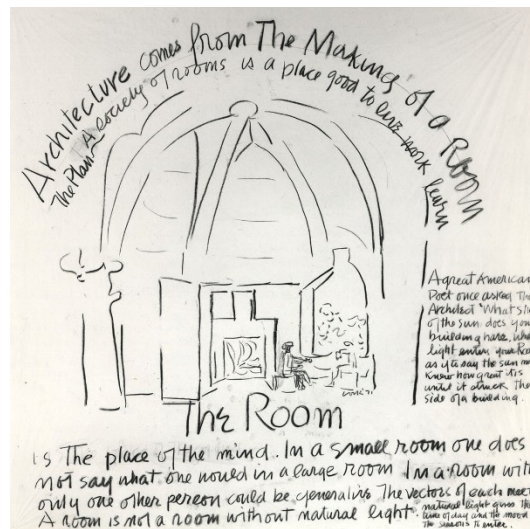 Architecture comes from The Making of a Room
The Plan – A society of rooms is a place good to live work learn
A great American
Poet once asked the
Architect "What sli
of the sun does you
building have, wha
light enters your Roo
as if to say the sun ne
knew how great it is
until it struck the
side of a building.
The Room
is The place of the mind. In a small room one does
not say what one would in a large room In a room with
only one other person could be generative The vectors of each meet
A room is not a room without natural light.
natural light gives the
time of day and the mood
The seasons to enter